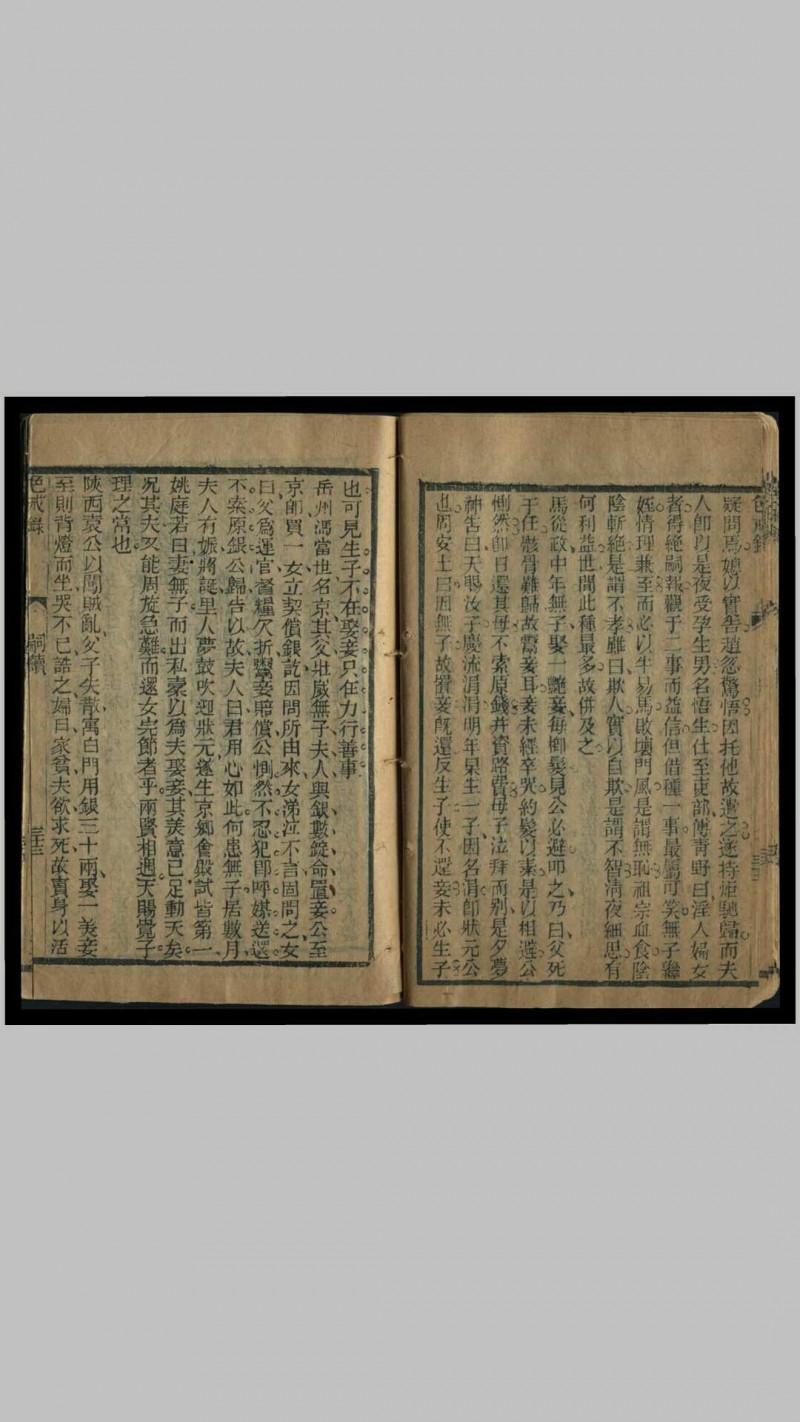 疑問馬媳以實告趙忽驚悟因托他故遣之遂持炬馳歸而夫
人卽以是夜受孕生男名悟生仕至吏部傅靑野曰淫人婦女
者得絶嗣報觀于二事而益信但借種一事最屬可笑無子繼
姪情理兼至而必以牛易馬敗壞門風是謂無恥祖宗血食陰
陰斬絶是謂不孝雖曰欺人實以自欺是謂不智淸夜細思有
何利益世間此種最多故併及之
馬從政中年無子娶一艷妾每櫛髮見公必避叩之乃曰父死
于任骸骨難歸故鬻妾耳妾未經卒哭約髮以素是以相避公
惻然卽日還其母不索原錢幷資路費母子泣拜而别是夕夢
神告曰天賜汝子慶流涓涓明年果生一子因名涓卽狀元公
也周安士曰因無子故買妾旣還反生子使不還妾未必生子
色戒錄
也可見生子不在娶妾只在力行善事
岳州馮當世名京其父壯歲無子夫人與銀數錠命置妾公至
京師買一女立契償銀訖因問所由來女涕泣不言固問之女
曰父爲運官督糧欠折鬻妾賠償公惻然不忍犯卽呼媒送還
不索原銀公歸告以故夫人曰君用心如此何患無子居數月
夫人有娠將誕里人夢鼓吹迎狀元遂生京鄉會殿試皆第一
姚庭若曰妻無子而出私橐以爲夫娶妾其美意已足動天矣
况其夫又能周旋急難而還女完節者乎兩賢相遇天賜覺子
理之常也
陝西袁公以闖賊亂父子失散寓白門用銀三十兩娶一美妾
至則背燈而坐哭不已詰之婦曰家貧夫欲求死故賣身以活
色戒錄 嗣續 三十三